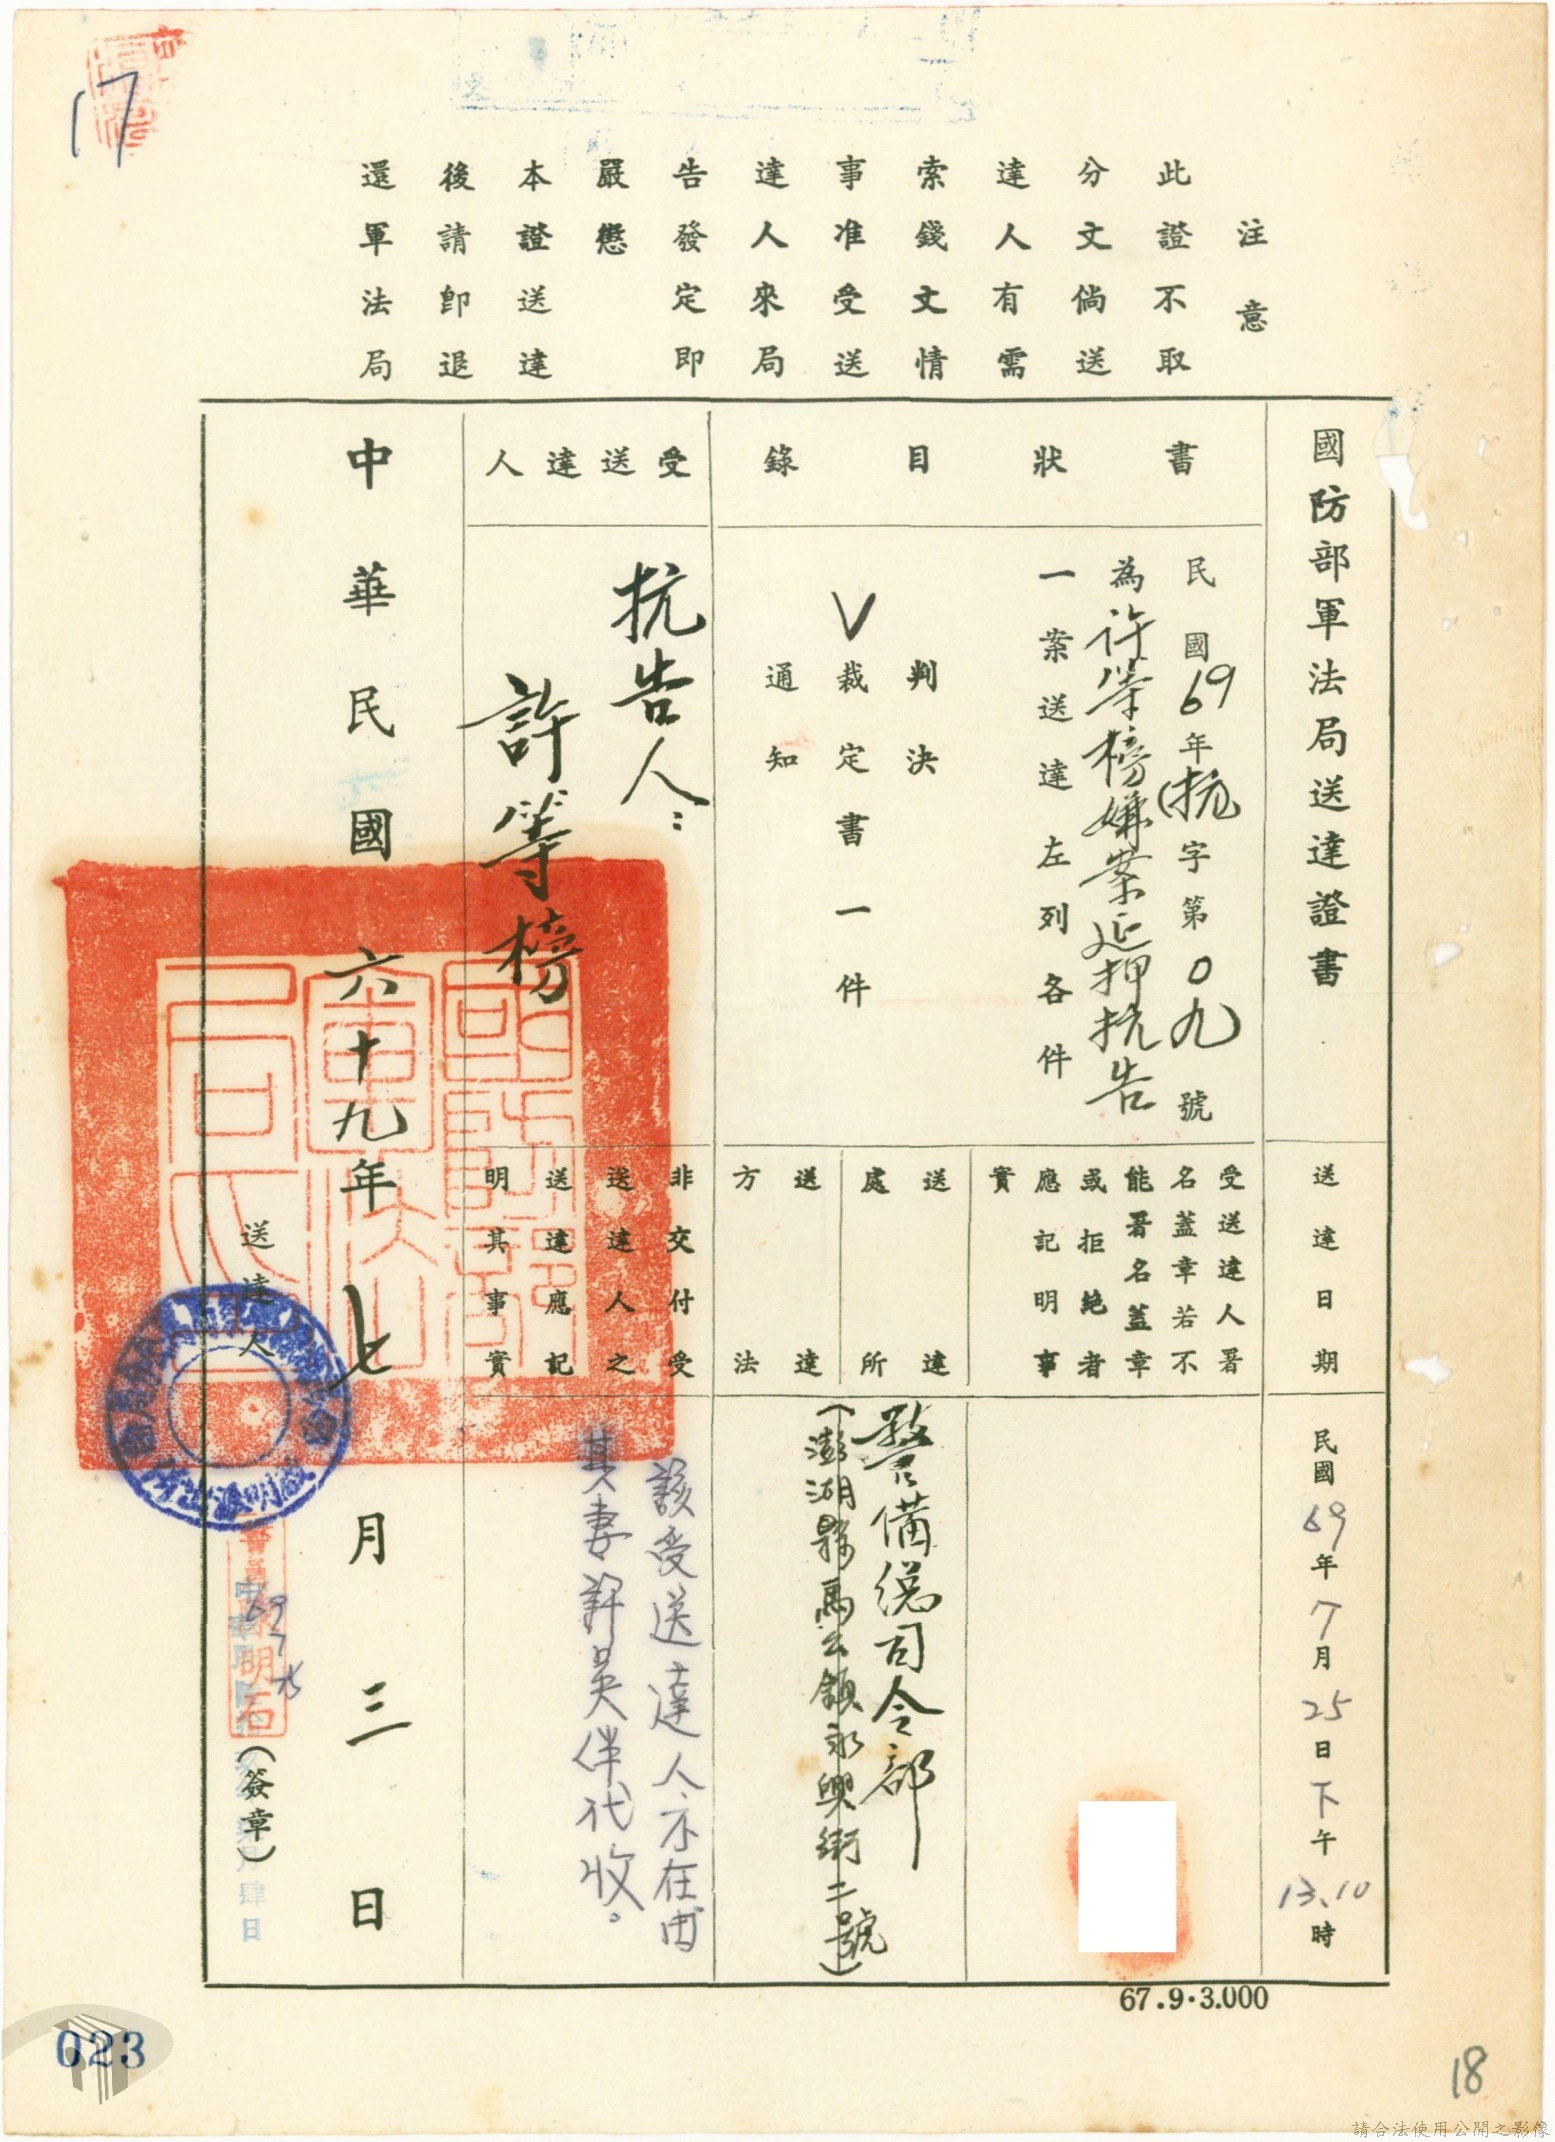 17
注意
此證不取
分文倘送
達人有需
索錢文情
事准受送
達人來局
告發定即
嚴懲
本證送達
後請即退
還軍法局
國防部軍法局送達證書
送達日期
民國69年7月25日下午13.10時
書狀目錄
民國69年抗字第0九號
為許等榜嫌案延押抗告
一案送達左列各件
判決
V裁定書一件
通知
受送達人署
名蓋章若不
能署名蓋章
或拒絕者
應記明事
實
送達處所
警備總司令部
(澎湖縣馬公鎮永興街二號)
送達方法
受送達人
抗告人:
許等榜
非交付受
送達人之
送達應記
明其事實
該受送達人不在由
其妻許吳伴代收。
中華民國六十九年七月三日
送達人
(簽章)
67.9·3.000
023
18
請合法使用公開之影像